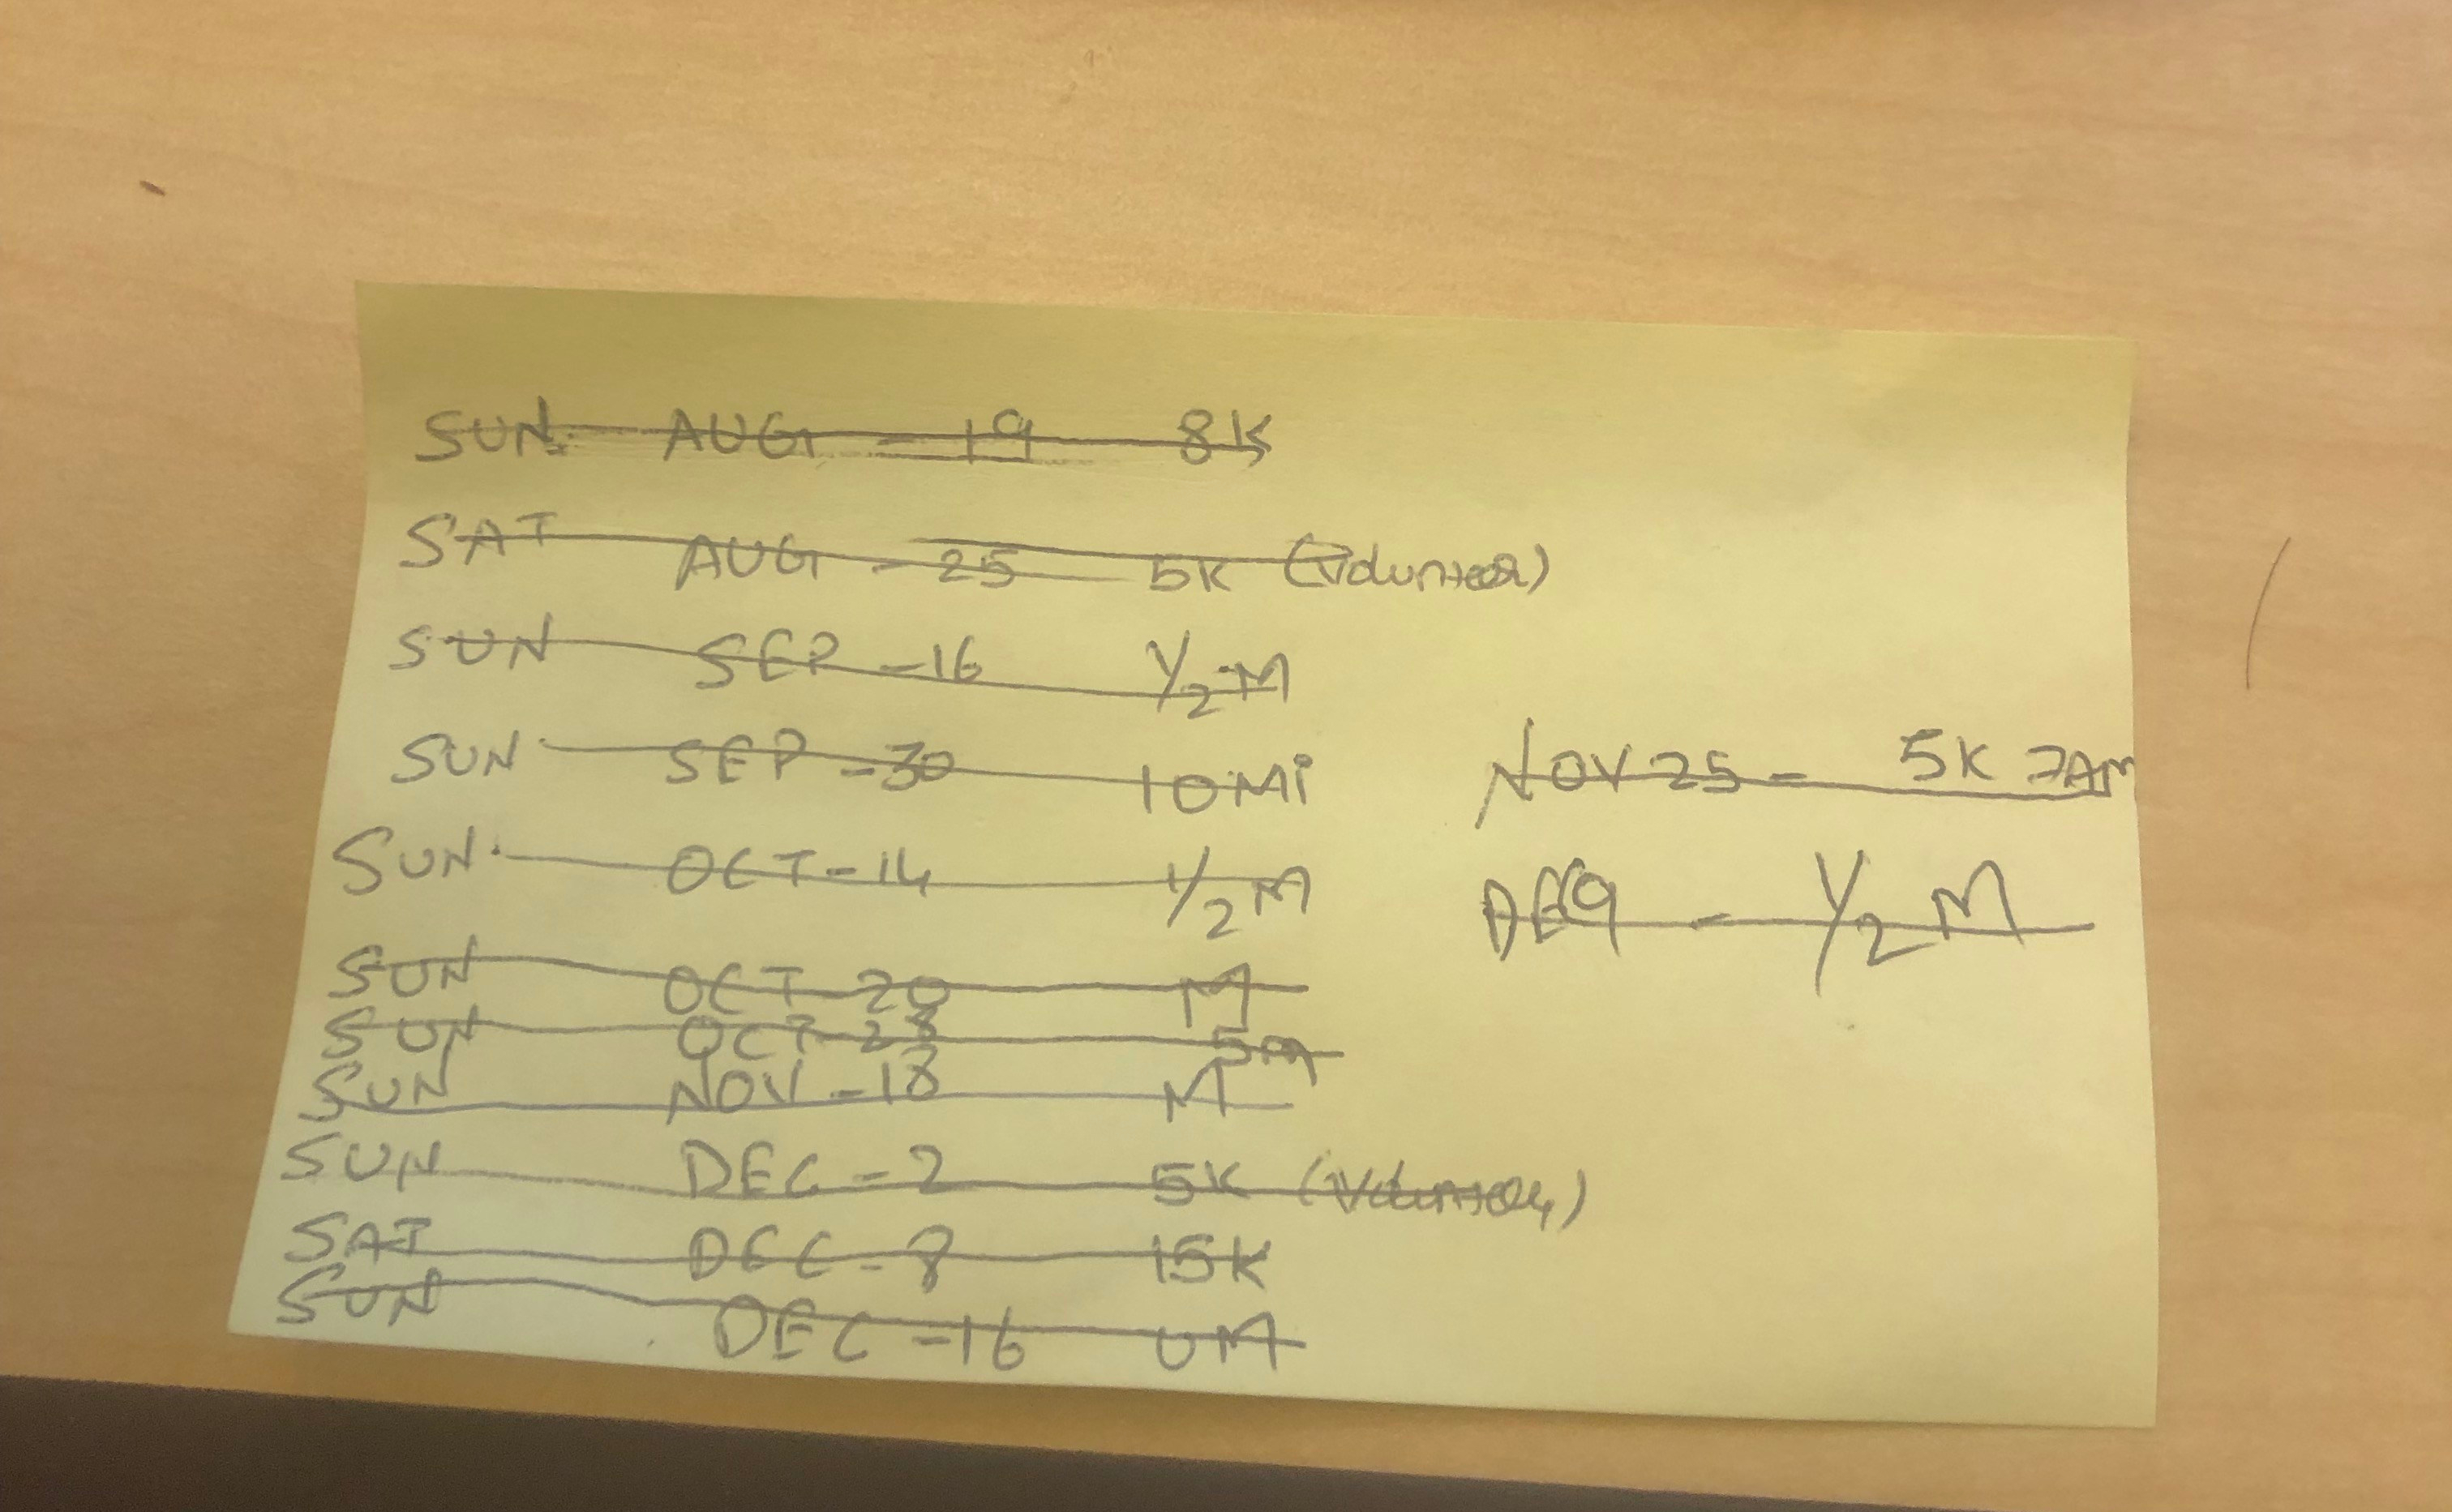 SUN. AUG - 19 8K
SAT AUG - 25 5K (Volunteer)
SUN SEP - 16 1/2 M
SUN SEP - 30 10 Mi
SUN. OCT - 14 1/2 M
SUN OCT - 20 M
SUN OCT - 28
SUN NOV - 18 M
SUN DEC - 2 5K (Volunteer)
SAT DEC - 8 15K
SUN DEC - 16 UM
NOV 25 - 5K 7AM
DEC 9 - 1/2 M